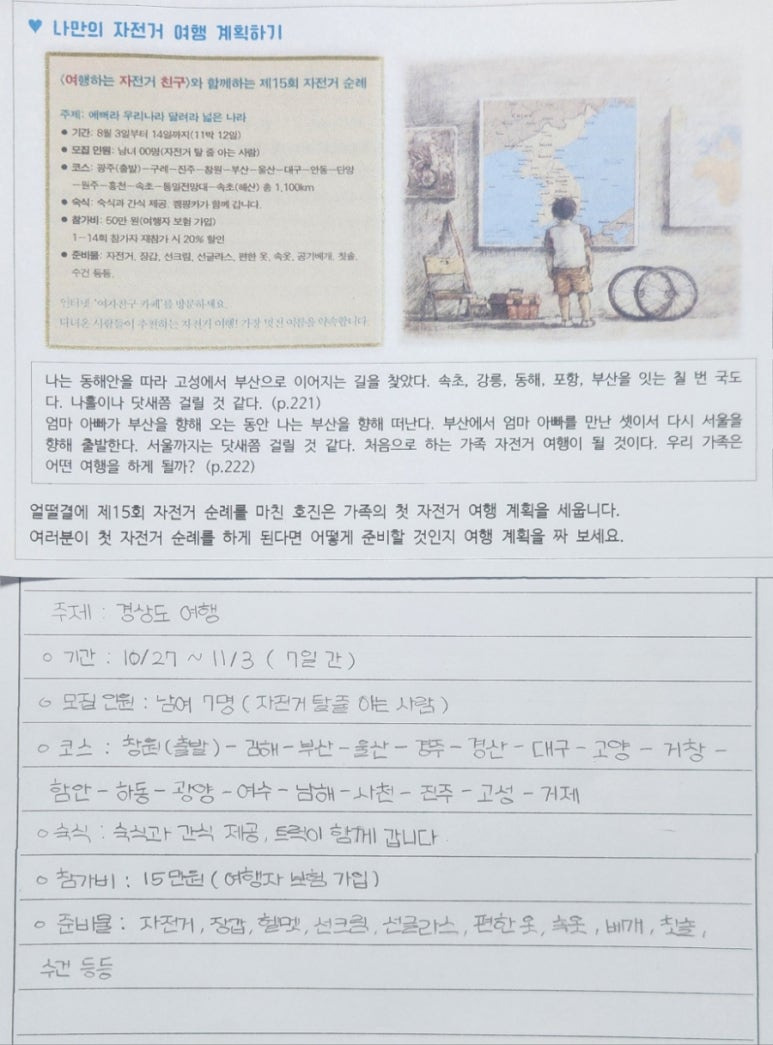 ♥ 나만의 자전거 여행 계획하기
〈여행하는 자전거 친구〉와 함께하는 제15회 자전거 순례
주제: 에뻐라 우리나라 달려라 넓은 나라
● 기간: 8월 3일부터 14일까지(11박 12일)
● 모집 인원: 남녀 00명(자전거 탈 줄 아는 사람)
● 코스: 광주(출발)−구례−진주−창원−부산−울산−대구−안동−단양
−원주−홍천−속초−통일전망대−속초(해산) 총 1,100km
● 숙식: 숙식과 간식 제공. 캠핑카가 함께 갑니다.
● 참가비: 50만 원(여행자 보험 가입)
1−14회 참가자 재참가 시 20% 할인
● 준비물: 자전거, 장갑, 선크림, 선글라스, 편한 옷, 속옷, 공기베개, 칫솔,
수건 등등.
인터넷 '여자친구 카페'를 방문하세요.
다녀온 사람들이 추천하는 자전거 여행! 가장 멋진 여름을 약속합니다.
나는 동해안을 따라 고성에서 부산으로 이어지는 길을 찾았다. 속초, 강릉, 동해, 포항, 부산을 잇는 칠 번 국도
다. 나흘이나 닷새쯤 걸릴 것 같다. (p.221)
엄마 아빠가 부산을 향해 오는 동안 나는 부산을 향해 떠난다. 부산에서 엄마 아빠를 만난 셋이서 다시 서울을
향해 출발한다. 서울까지는 닷새쯤 걸릴 것 같다. 처음으로 하는 가족 자전거 여행이 될 것이다. 우리 가족은
어떤 여행을 하게 될까? (p.222)
얼떨결에 제15회 자전거 순례를 마친 호진은 가족의 첫 자전거 여행 계획을 세웁니다.
여러분이 첫 자전거 순례를 하게 된다면 어떻게 준비할 것인지 여행 계획을 짜 보세요.
주제 : 경상도 여행
○ 기간 : 10/27 ~ 11/3 ( 7일 간 )
○ 모집 인원 : 남여 7명 ( 자전거 탈줄 아는 사람 )
○ 코스 : 창원(출발) - 김해 - 부산 - 울산 - 경주 - 경산 - 대구 - 고양 - 거창 -
함안 - 하동 - 광양 - 여수 - 남해 - 사천 - 진주 - 고성 - 거제
○ 숙식 : 숙식과 간식 제공, 트럭이 함께 갑니다
○ 참가비 : 15만원 ( 여행자 보험 가입 )
○ 준비물 : 자전거, 장갑, 헬멧, 선크림, 선글라스, 편한 옷, 속옷, 베개, 칫솔,
수건 등등